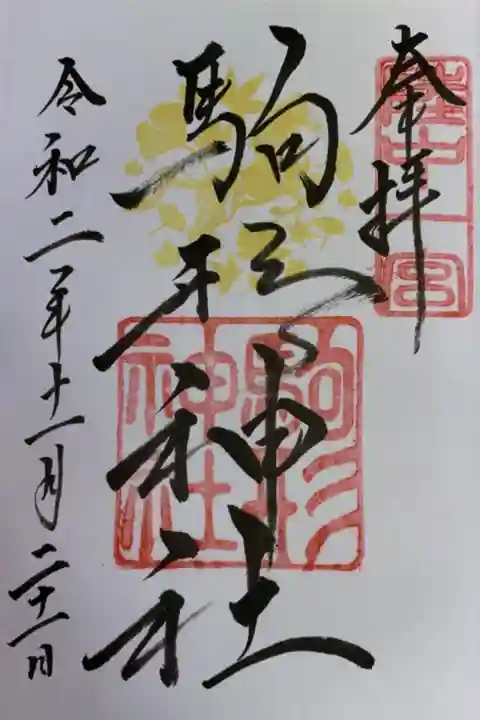 奉拝
陸中一宮
駒形神社
駒形神社
令和二年十一月二十一日